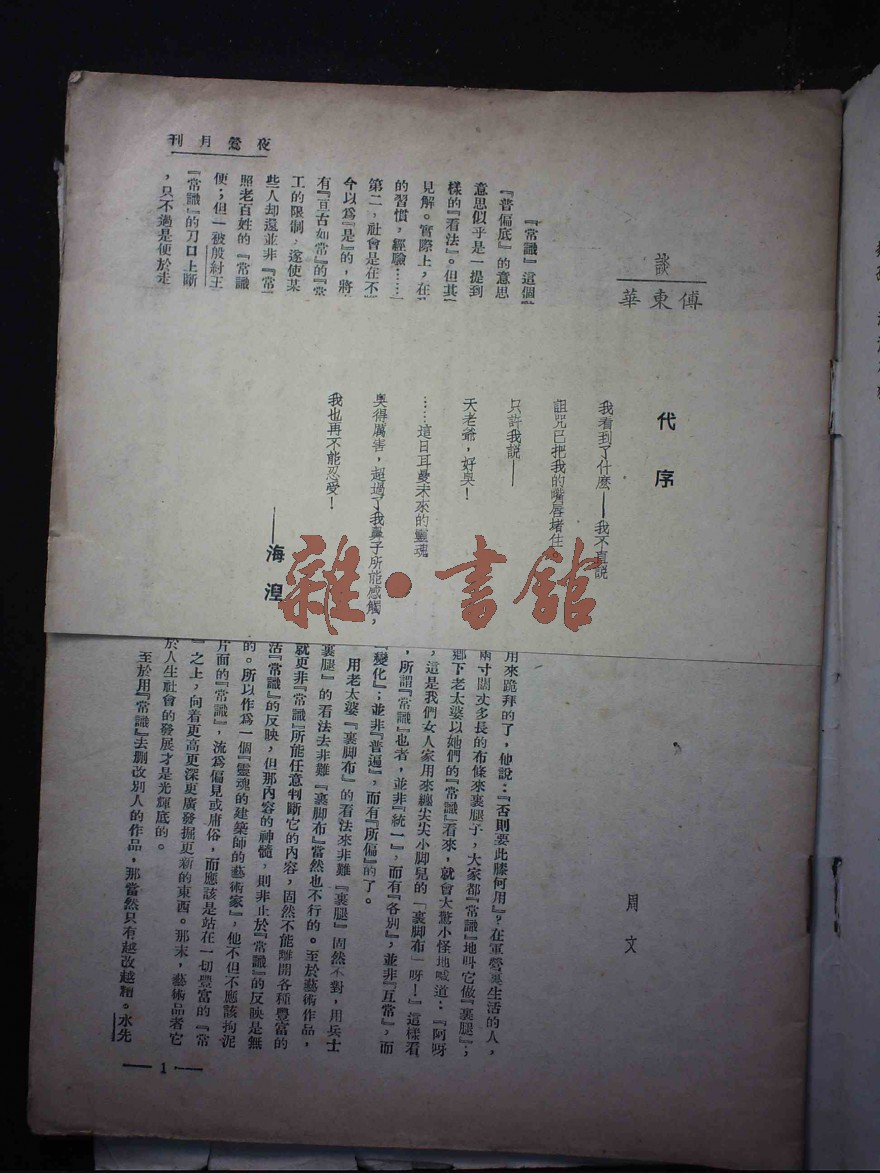 夜鶯月刊
談
傅東華
『常識』這個
『普偏底』的意思
意思似乎是一提到
樣的『看法』。但其
見解。實際上，在
的習慣，經驗……
第二，社會是在不
今以爲『是』的，將
有『亘古如常』的『常
工的限制，遂使某
些人却還並非『常
照老百姓的『常識
便；但一被殷紂王
『常識』的刀口上斷
，只不過是便於走
代序
我看到了什麽——我不直説
詛咒已把我的嘴唇堵住。
只許我説——
天老爺，好臭！
……這日耳曼未來的靈魂
臭得厲害，超過了我鼻子所能感觸，
我也再不能忍受！
——海涅
雜·書館
周文
用來跪拜的了，他說：『否則要此膝何用』？在軍營裏生活的人，
兩寸闊丈多長的布條來裹腿子，大家都『常識』地呌它做『裹腿』；
鄉下老太婆以她們的『常識』看來，就會大驚小怪地喊道：『阿呀
，這是我們女人家用來纏尖尖小脚兒的「裹脚布」呀！』這樣看
，所謂『常識』也者，並非『統一』，而有『各別』，並非『亙常』，而
『變化』；並非『普遍』，而有『所偏』的了。
用老太婆『裹脚布』的看法來非難『裹腿』固然不對，用兵士
裹腿』的看法去非難『裹脚布』當然也不行的。至於藝術作品，
就更非『常識』所能任意判斷它的內容，固然不能離開各種豐富的
活『常識』的反映，但那內容的神髓，則非止於『常識』的反映是無
的。所以作爲一個『靈魂的建築師的藝術家』，他不但不應該拘泥
片面的『常識』，流爲偏見或庸俗，而應該是站在一切豐富的『常
』之上，向着更高更深更廣發掘更新的東西。那末，藝術品者它
於人生社會的發展才是光輝底的。
至於用『常識』去删改別人的作品，那當然只有越改越糟。水先
—1—